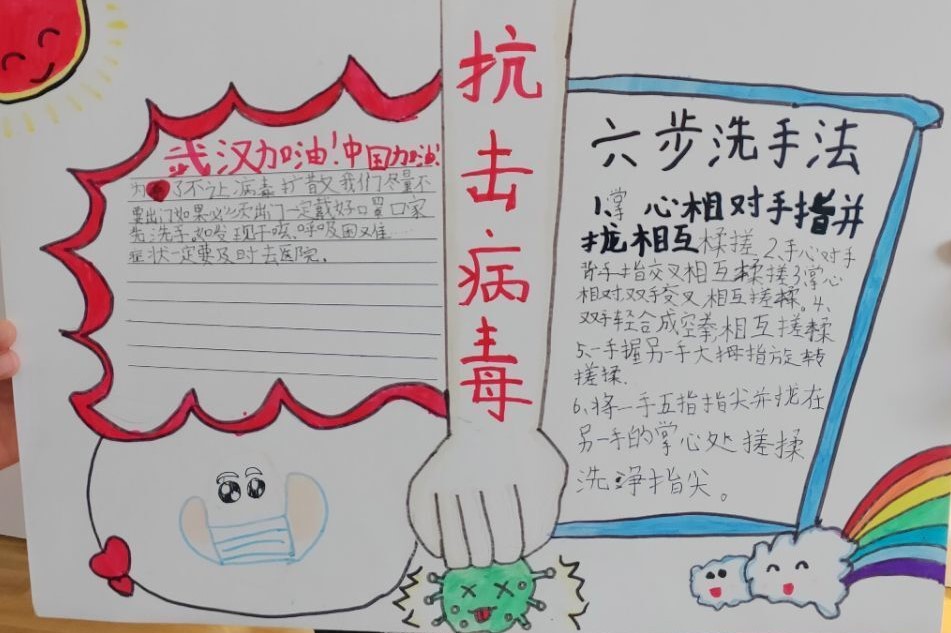 抗击病毒
武汉加油!中国加油!
为了不让病毒扩散我们尽量不
要出门如果必须出门一定戴好口罩回家
先洗手。如发现干咳、呼吸困难
症状一定要及时去医院。
六步洗手法
1、掌心相对手指并
拢相互揉搓 2、手心对手
背手指交叉相互揉搓3、掌心
相对,双手交叉相互搓揉。4、
双手轻合成空拳,相互搓揉
5、一手握另一手大拇指旋转
搓揉.
6、将一手五指指尖并拢在
另一手的掌心处搓揉
洗净指尖。